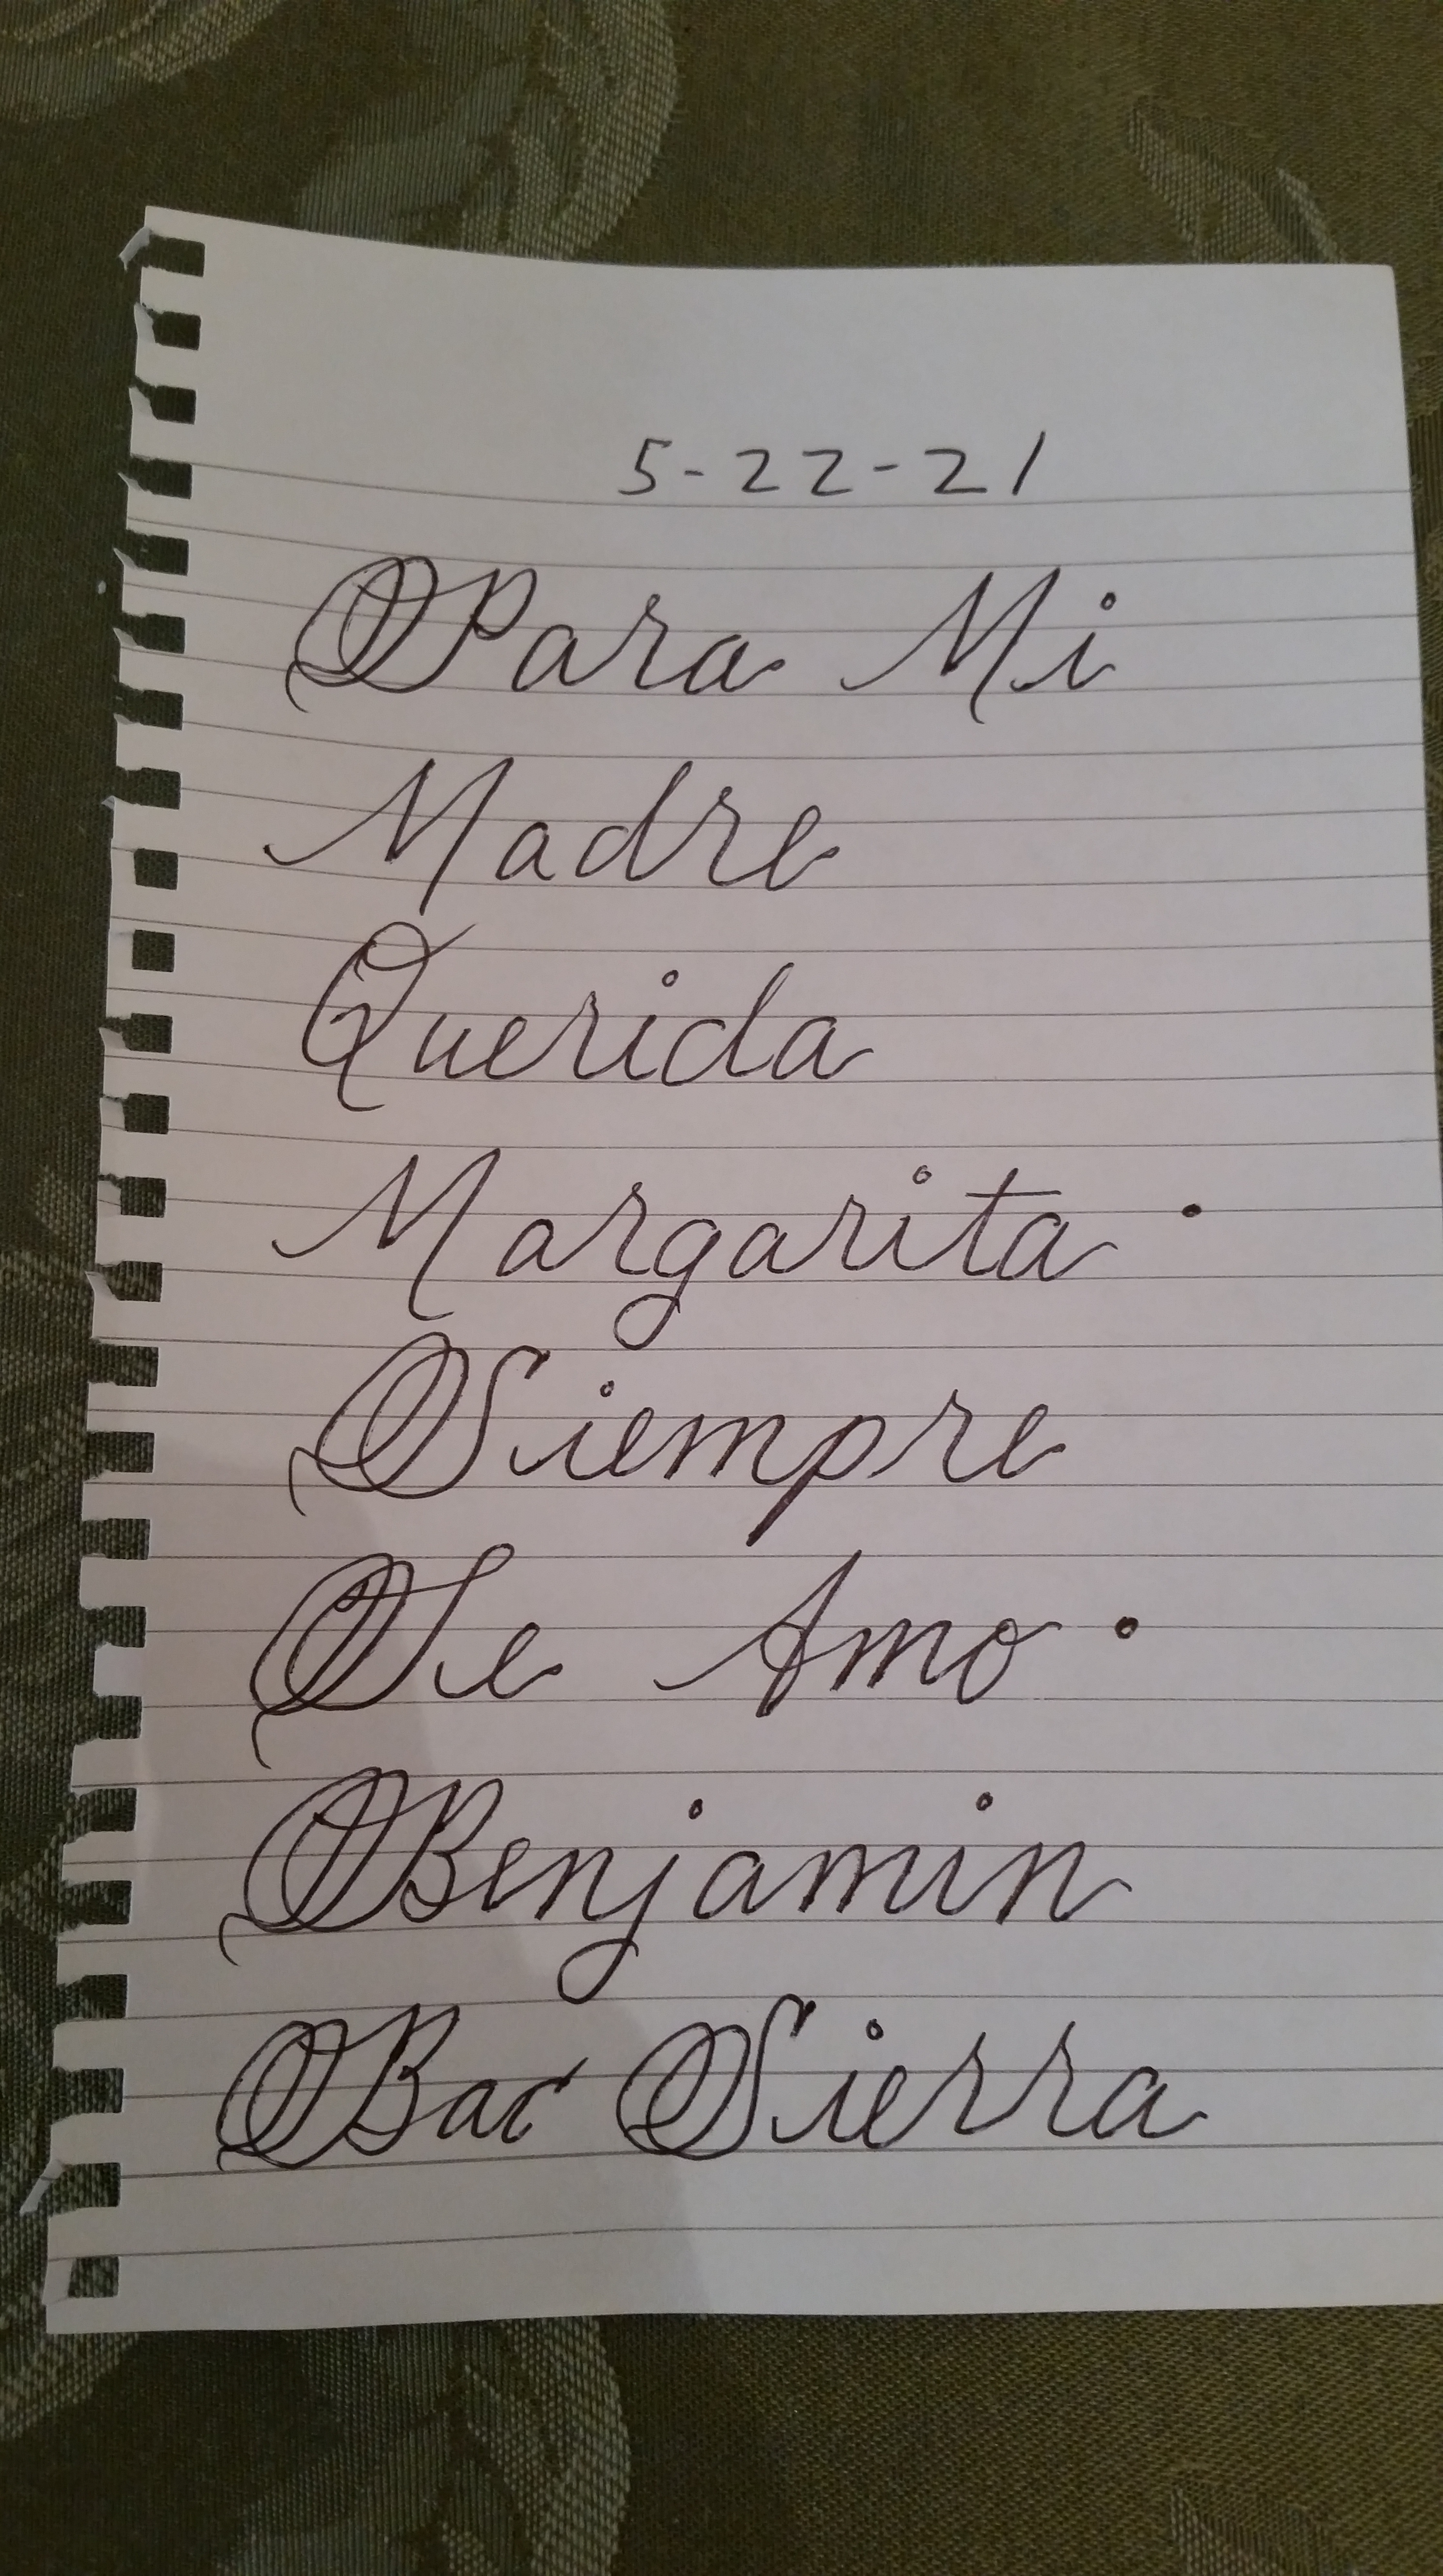 5-22-21
Para Mi
Madre
Querida
Margarita.
Siempre
Te Amo.
Benjamin
Bac Sierra